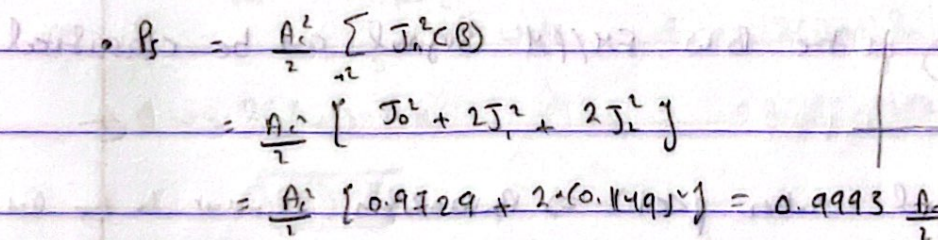 • Ps = Ac²/2 Σ Jn²(β)
+2
= Ac²/2 [ J0² + 2J1² + 2J2² ]
= Ac²/2 [ 0.9729 + 2*(0.1149)² ] = 0.9993 Ac/2